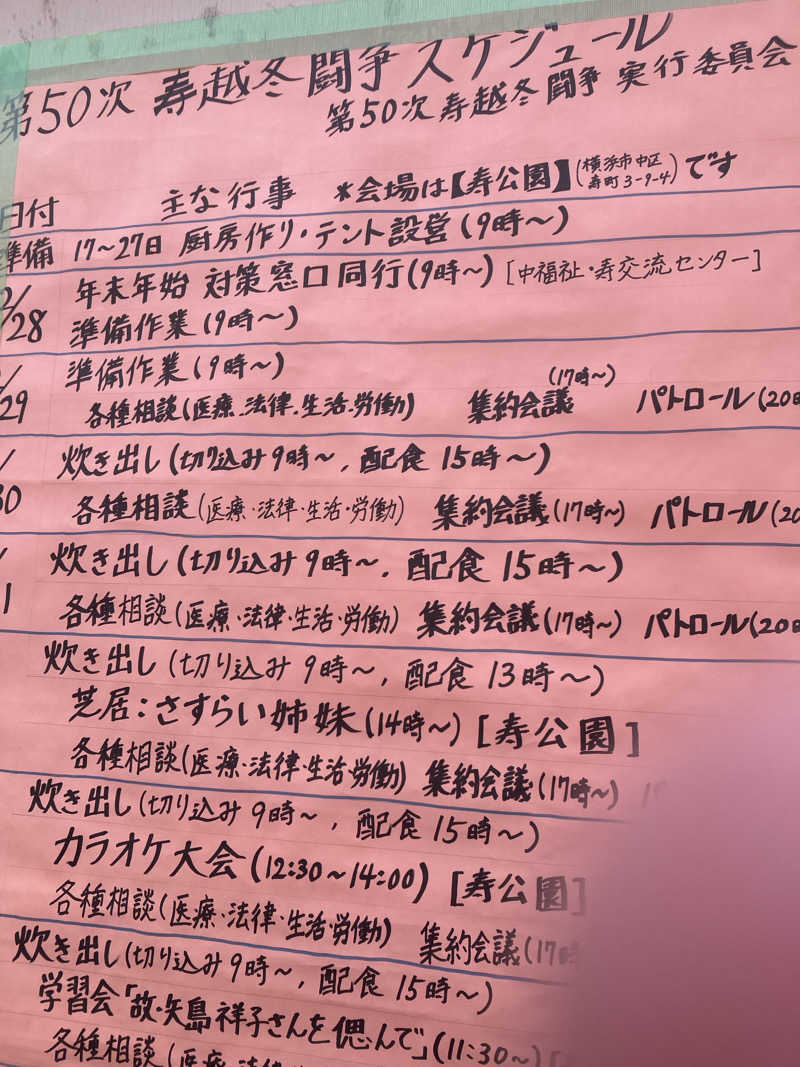 第50次 寿越冬闘争スケジュール
第50次寿越冬闘争 実行委員会
日付 主な行事 *会場は【寿公園】(横浜市中区寿町3-9-4)です
準備 17～27日 厨房作り・テント設営(9時～)
年末年始 対策窓口同行(9時～)[中福祉・寿交流センター]
28 準備作業(9時～)
準備作業(9時～)
29 各種相談(医療.法律.生活.労働) 集約会議(17時～) パトロール(20
炊き出し(切り込み9時～,配食15時～)
30 各種相談(医療・法律・生活・労働) 集約会議(17時～) パトロール(20
炊き出し(切り込み9時～,配食15時～)
1 各種相談(医療・法律・生活・労働) 集約会議(17時～) パトロール(20
炊き出し(切り込み9時～,配食13時～)
芝居:さすらい姉妹(14時～)[寿公園]
各種相談(医療・法律・生活・労働) 集約会議(17時～)
炊き出し(切り込み9時～,配食15時～)
カラオケ大会(12:30～14:00)[寿公園]
各種相談(医療・法律・生活・労働) 集約会議(17時
炊き出し(切り込み9時～,配食15時～)
学習会「故・矢島祥子さんを偲んで」(11:30～)[
各種相談(医療・法律・生活・労働)